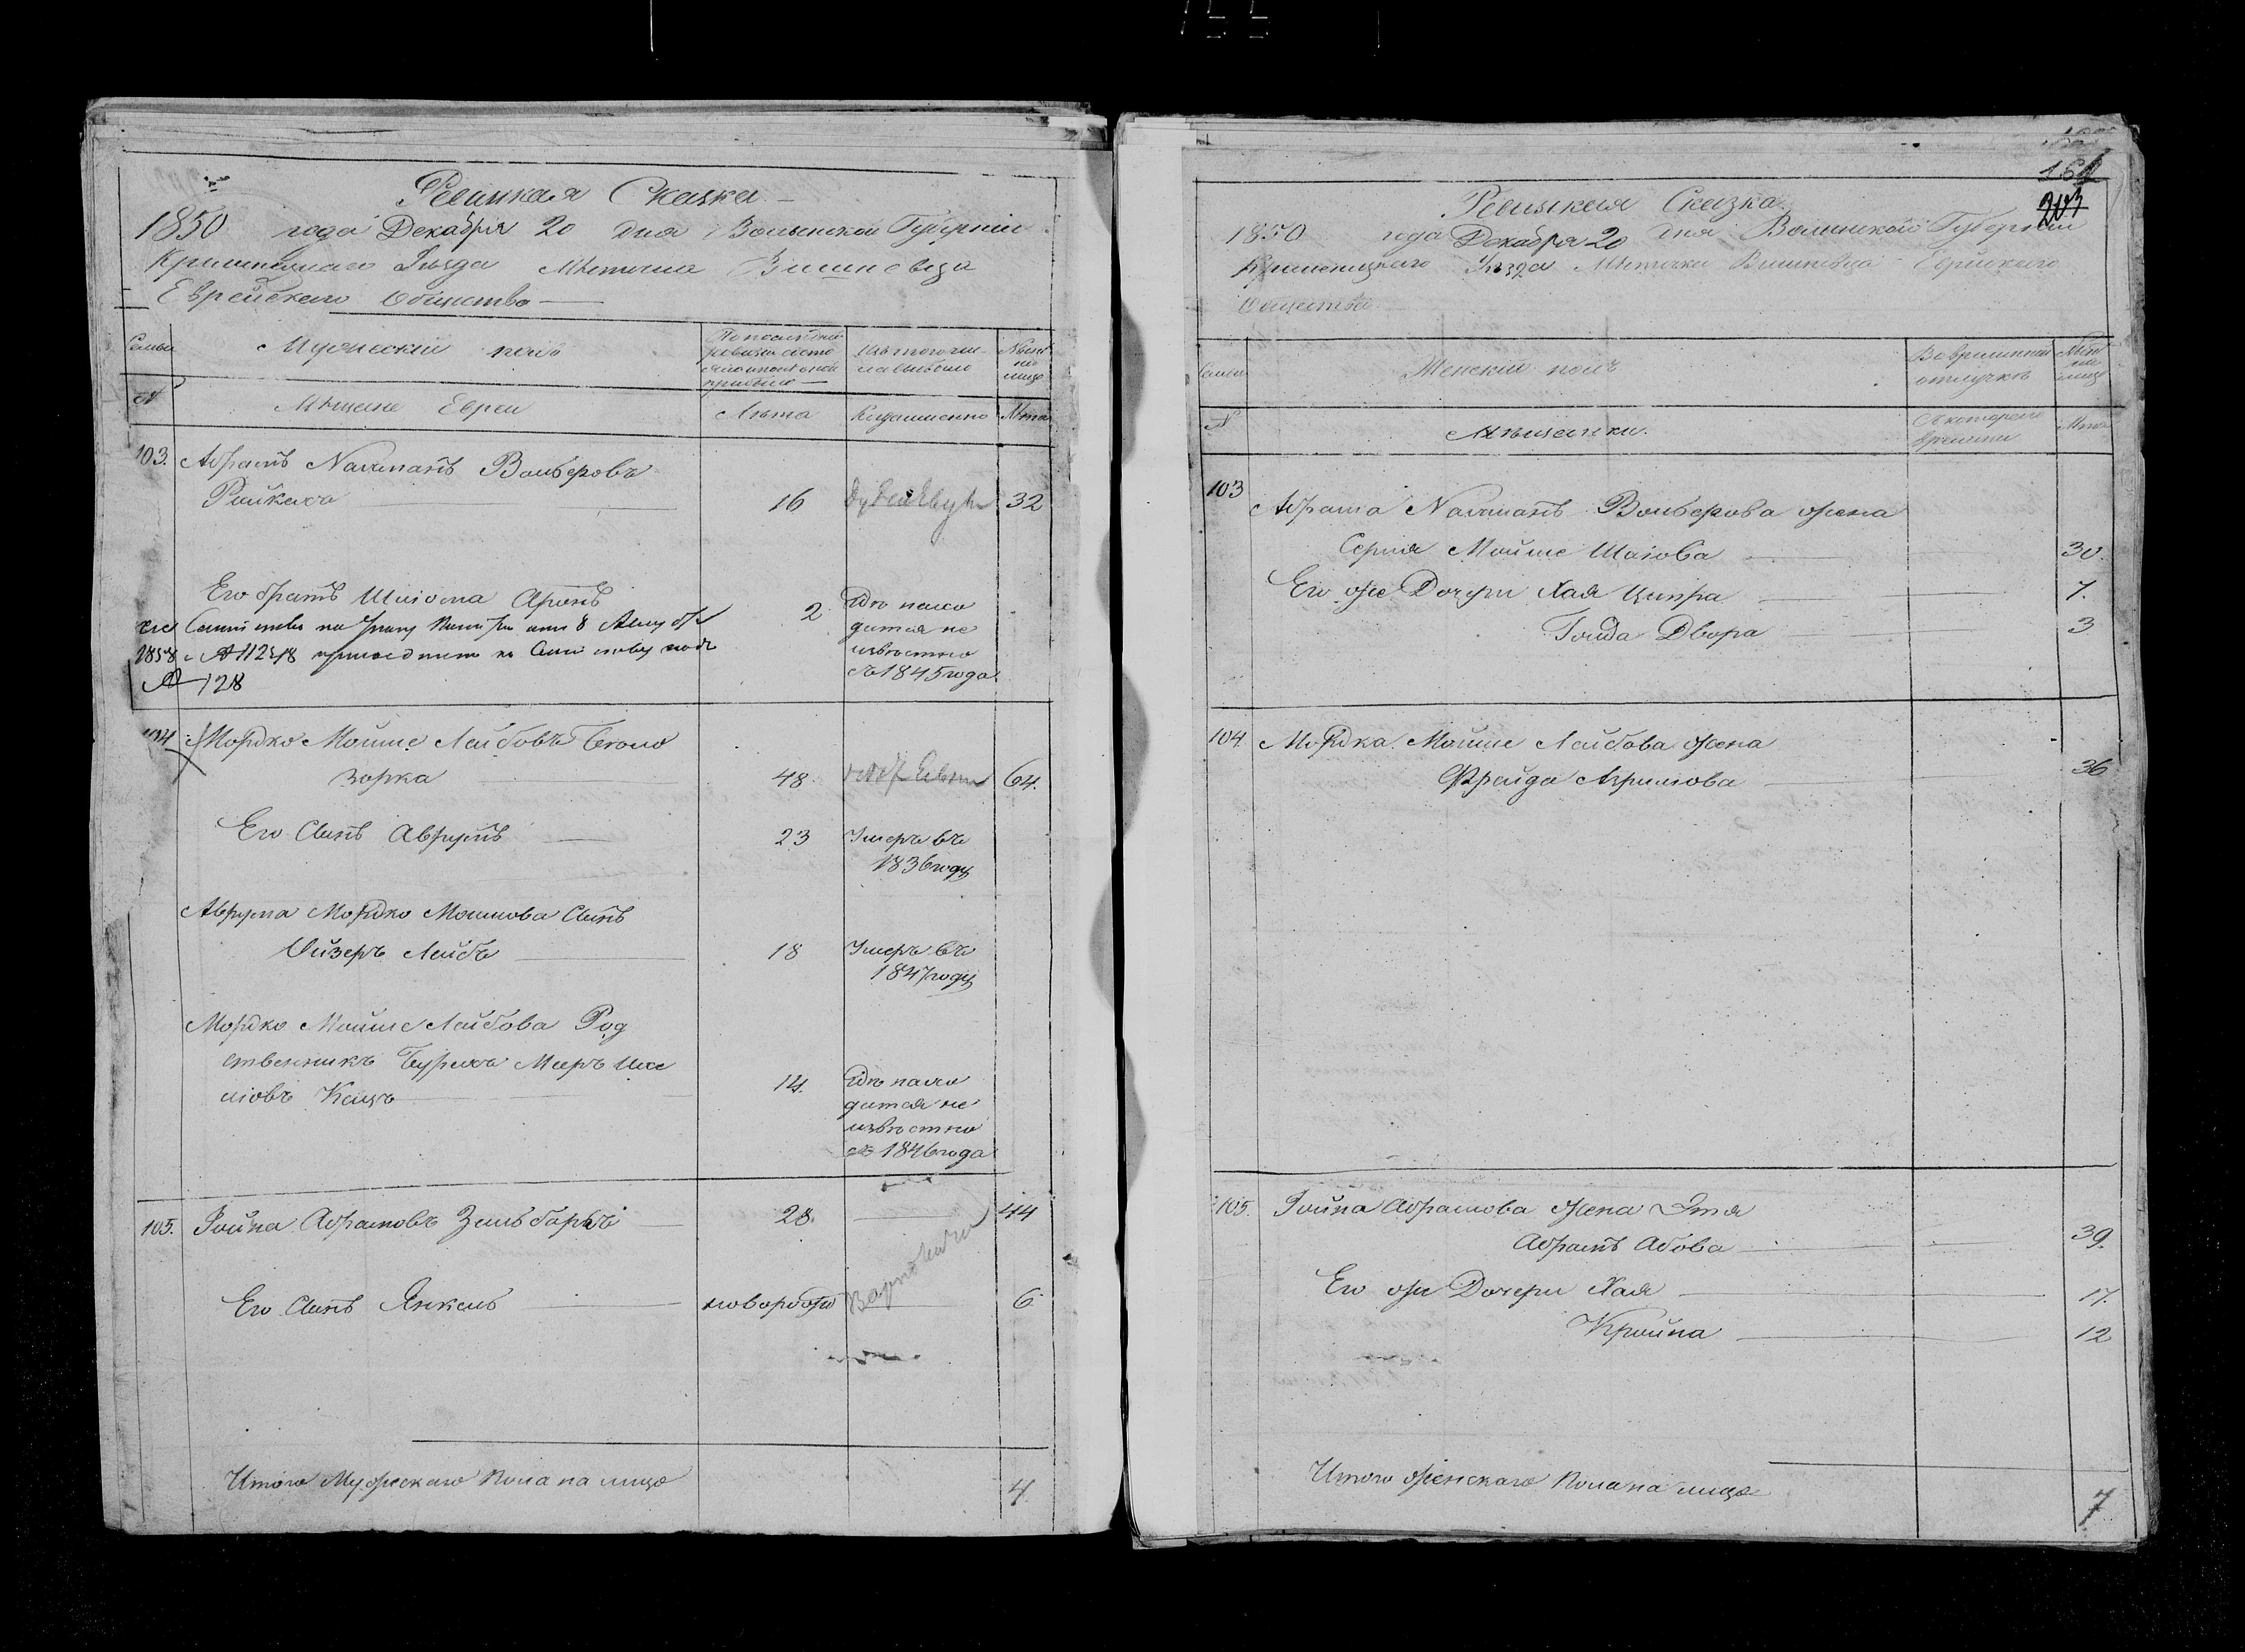 Ревизская Сказка
1850 года Декабря 20 дня Волынской Губернии
Кременецкаго Уезда Местечка Вишневца
Еврейскаго Общества
Семьи
Мужеский полъ
По последней ревизии состояло и после оной прибыло
Изъ того числа выбыло
Ныне на лицо
№
Мещане Евреи
Лета
Когда именно
Лета
103. Абрамъ Нахманъ Вольберовъ
Райхелъ 16 32
Его братъ Шліома Аронъ 2 Где нахо
дится не
известно
съ 1845 года
1858 № 11248
№ 128
104 Мордко Мойше Лейбовъ
зорка 48. 64.
Его Сынъ Аврумъ 23 Умеръ въ
1836 году
Аврума Мордко Мошкова Сынъ
Ойзеръ Лейбъ 18 Умеръ въ
1847 году
Мордко Мойше Лейбова Род
ственникъ Мееръ
Кацъ 14. Где нахо
дится не
известно
съ 1846 года
105. Іойна Абрамовъ Зильбаръ 28. 44
Его Сынъ Янкель новорож 6
Итого Мужескаго Пола на лицо 4
Ревизская Сказка
1850 года Декабря 20 дня Волынской Губернии
Кременецкаго Уезда Местечка Вишневца Еврейскаго
Общества
Семьи
Женский полъ
Во временной отлучке
Ныне на лицо
№
Мещанки.
Съ котораго времени
Лета
103 Абрама Нахманъ Вольберова жена
Мойше Шаіова 30.
Его же Дочери Хая Ципра 7.
Гольда Двора 3
104 Мордка Мойше Лейбова жена
Фрейда 36
105. Іойна Абрамова жена Этя
Абрамъ Абова 39.
Его же Дочери Хая 17.
Кройна 12
Итого женскаго Пола на лицо 7